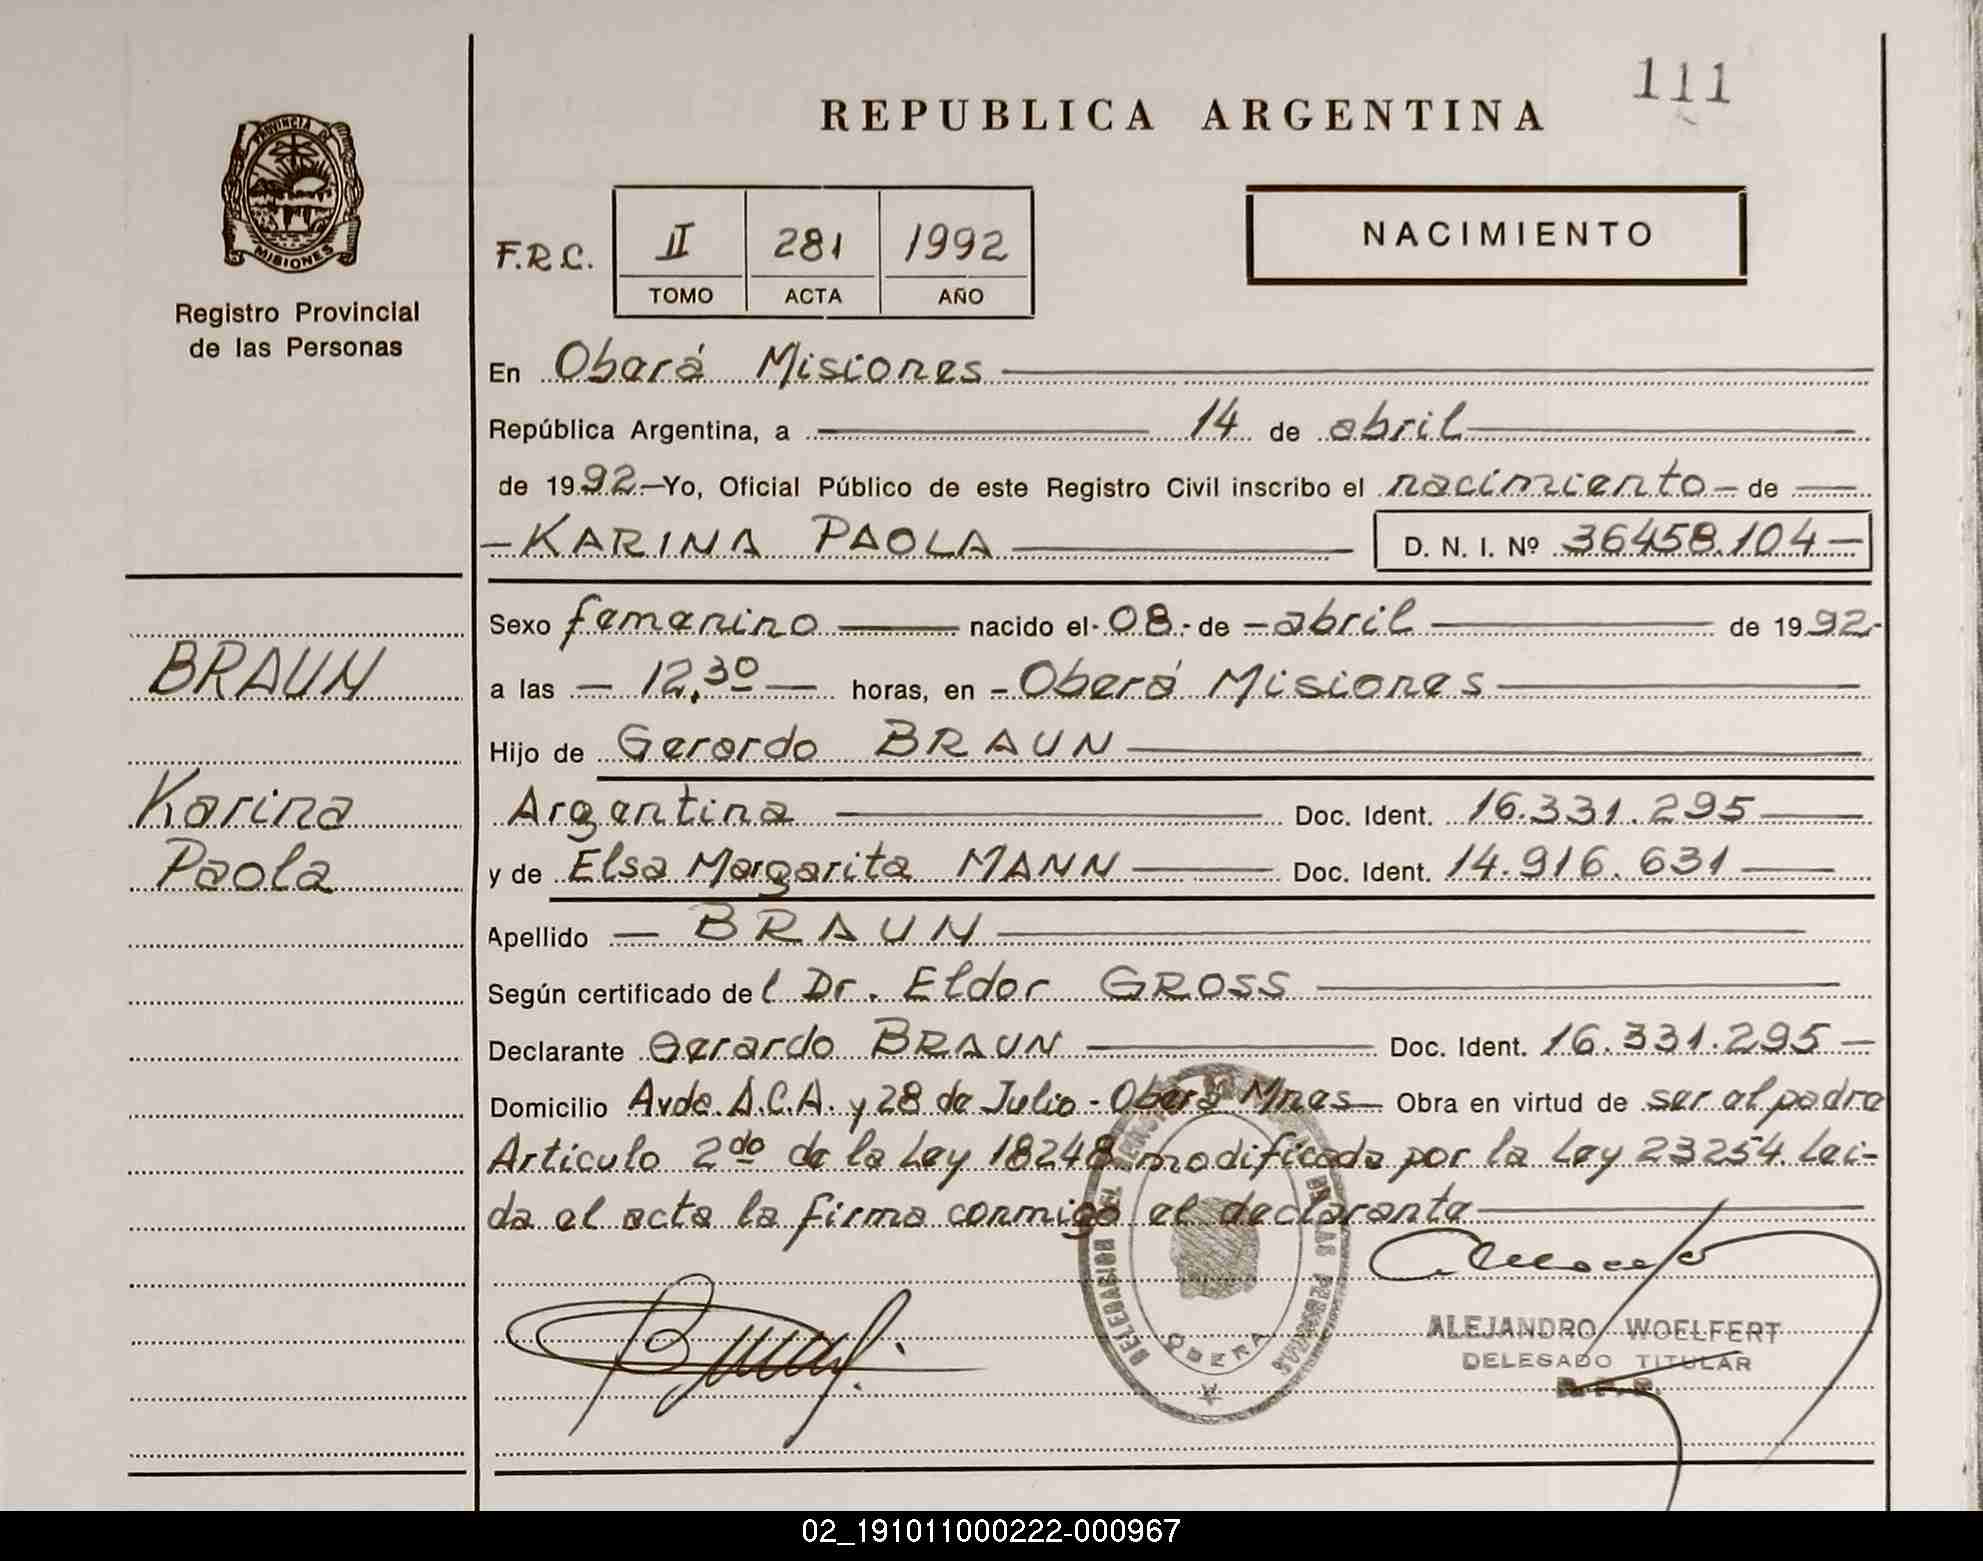 111
REPUBLICA ARGENTINA
PROVINCIA DE
MISIONES
Registro Provincial
de las Personas
F.R.C. II 281 1992
TOMO ACTA AÑO
NACIMIENTO
En Oberá Misiones
República Argentina, a 14 de abril
de 1992 Yo, Oficial Público de este Registro Civil inscribo el nacimiento de
KARINA PAOLA D. N. I. Nº 36458.104
Sexo femenino nacido el 08 de abril de 1992
BRAUN
a las 12,30 horas, en Oberá Misiones
Hijo de Gerardo BRAUN
Karina
Argentina Doc. Ident. 16.331.295
Paola
y de Elsa Margarita MANN Doc. Ident. 14.916.631
Apellido BRAUN
Según certificado del Dr. Eldor GROSS
Declarante Gerardo BRAUN Doc. Ident. 16.331.295
Domicilio Avda. A.C.A. y 28 de Julio - Oberá Mnes Obra en virtud de ser el padre
Articulo 2do de la Ley 18248 modificada por la Ley 23254. Lei-
da el acta la firma conmigo el declarante
DELEGACION DEL DE LAS PERSONAS
OBERA
ALEJANDRO WOELFERT
DELEGADO TITULAR
R.P.P.
02_191011000222-000967